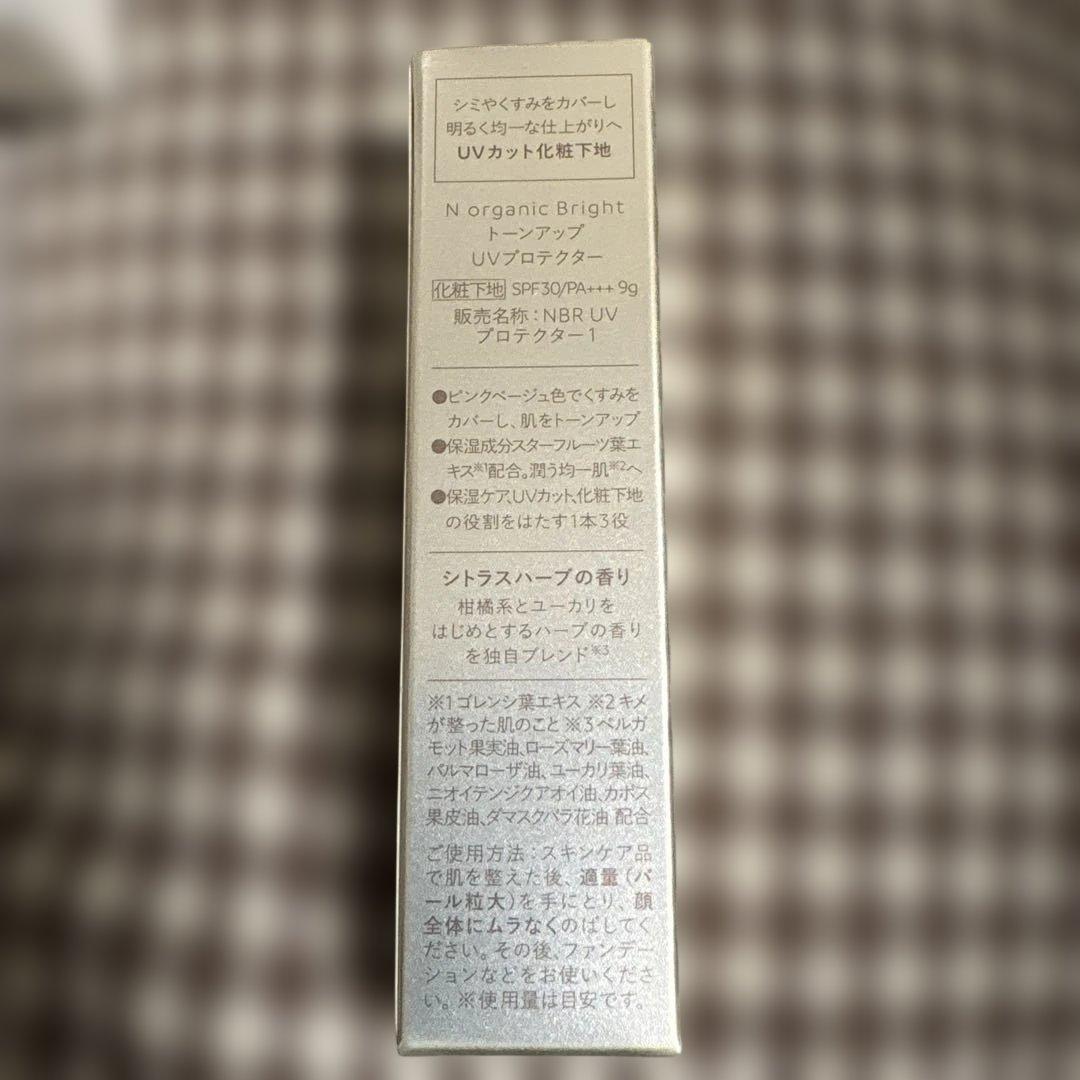 シミやくすみをカバーし
明るく均一な仕上がりへ
UVカット化粧下地
N organic Bright
トーンアップ
UVプロテクター
化粧下地 SPF30/PA+++ 9g
販売名称：NBR UV
プロテクター1
●ピンクベージュ色でくすみを
カバーし、肌をトーンアップ
●保湿成分スターフルーツ葉エ
キス※1配合。潤う均一肌※2へ
●保湿ケア、UVカット、化粧下地
の役割をはたす1本3役
シトラスハーブの香り
柑橘系とユーカリを
はじめとするハーブの香り
を独自ブレンド※3
※1ゴレンシ葉エキス ※2キメ
が整った肌のこと ※3ベルガ
モット果実油、ローズマリー葉油、
パルマローザ油、ユーカリ葉油、
ニオイテンジクアオイ油、カボス
果皮油、ダマスクバラ花油 配合
ご使用方法：スキンケア品
で肌を整えた後、適量（パ
ール粒大）を手にとり、顔
全体にムラなくのばしてく
ださい。その後、ファンデー
ションなどをお使いくださ
い。※使用量は目安です。